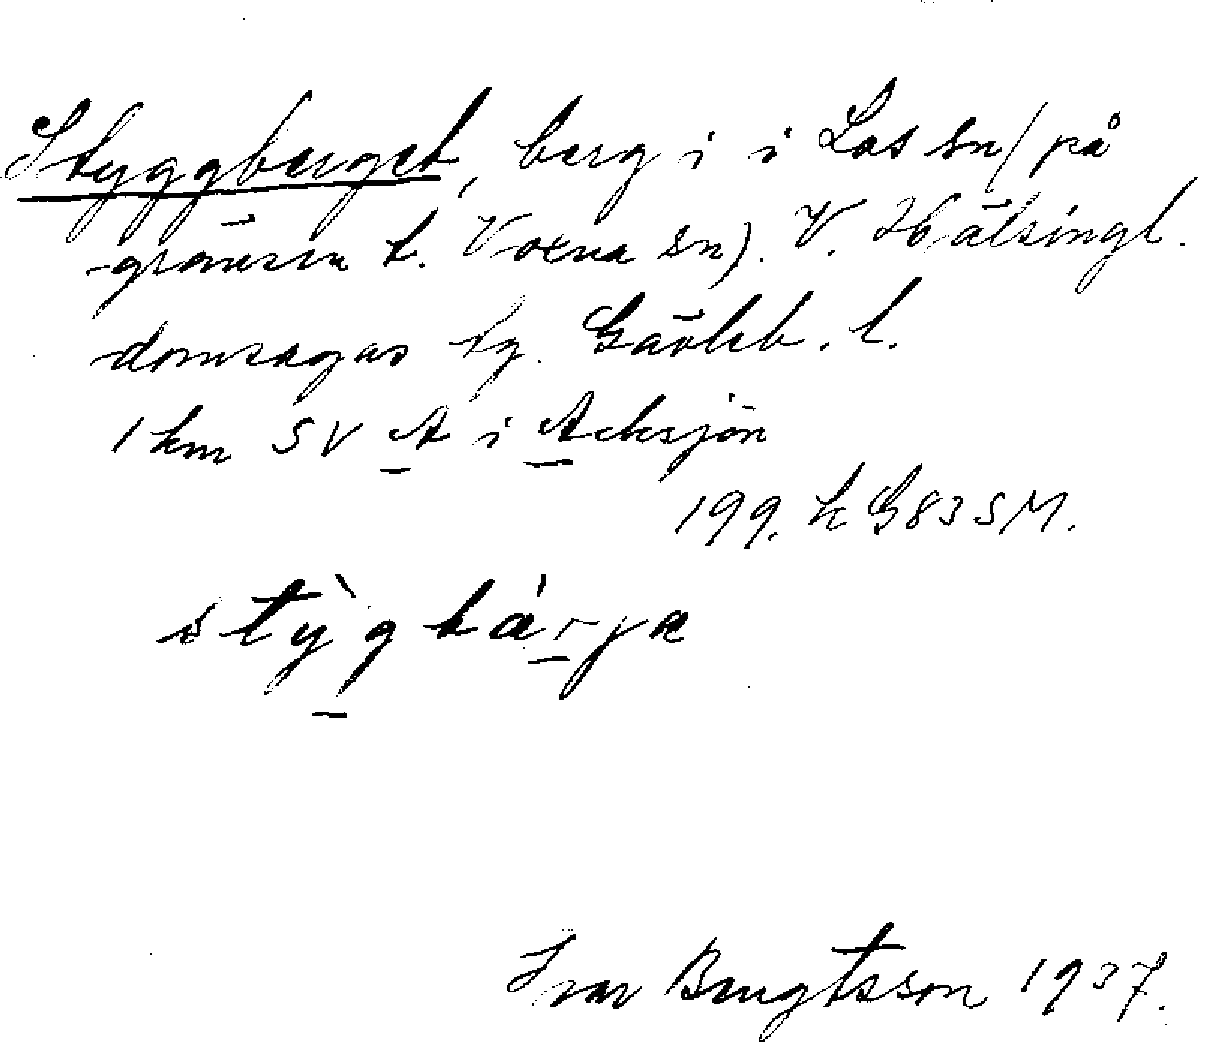 Styggberget, berg i i Los sn (på
gränsen t. Voxna sn). V. Hälsingl.
domsagas tg. Gävleb. l.
1 km SV A i Acksjön
199. k G 83 SM.
stỳgbárja
Ivar Bengtsson 1937.